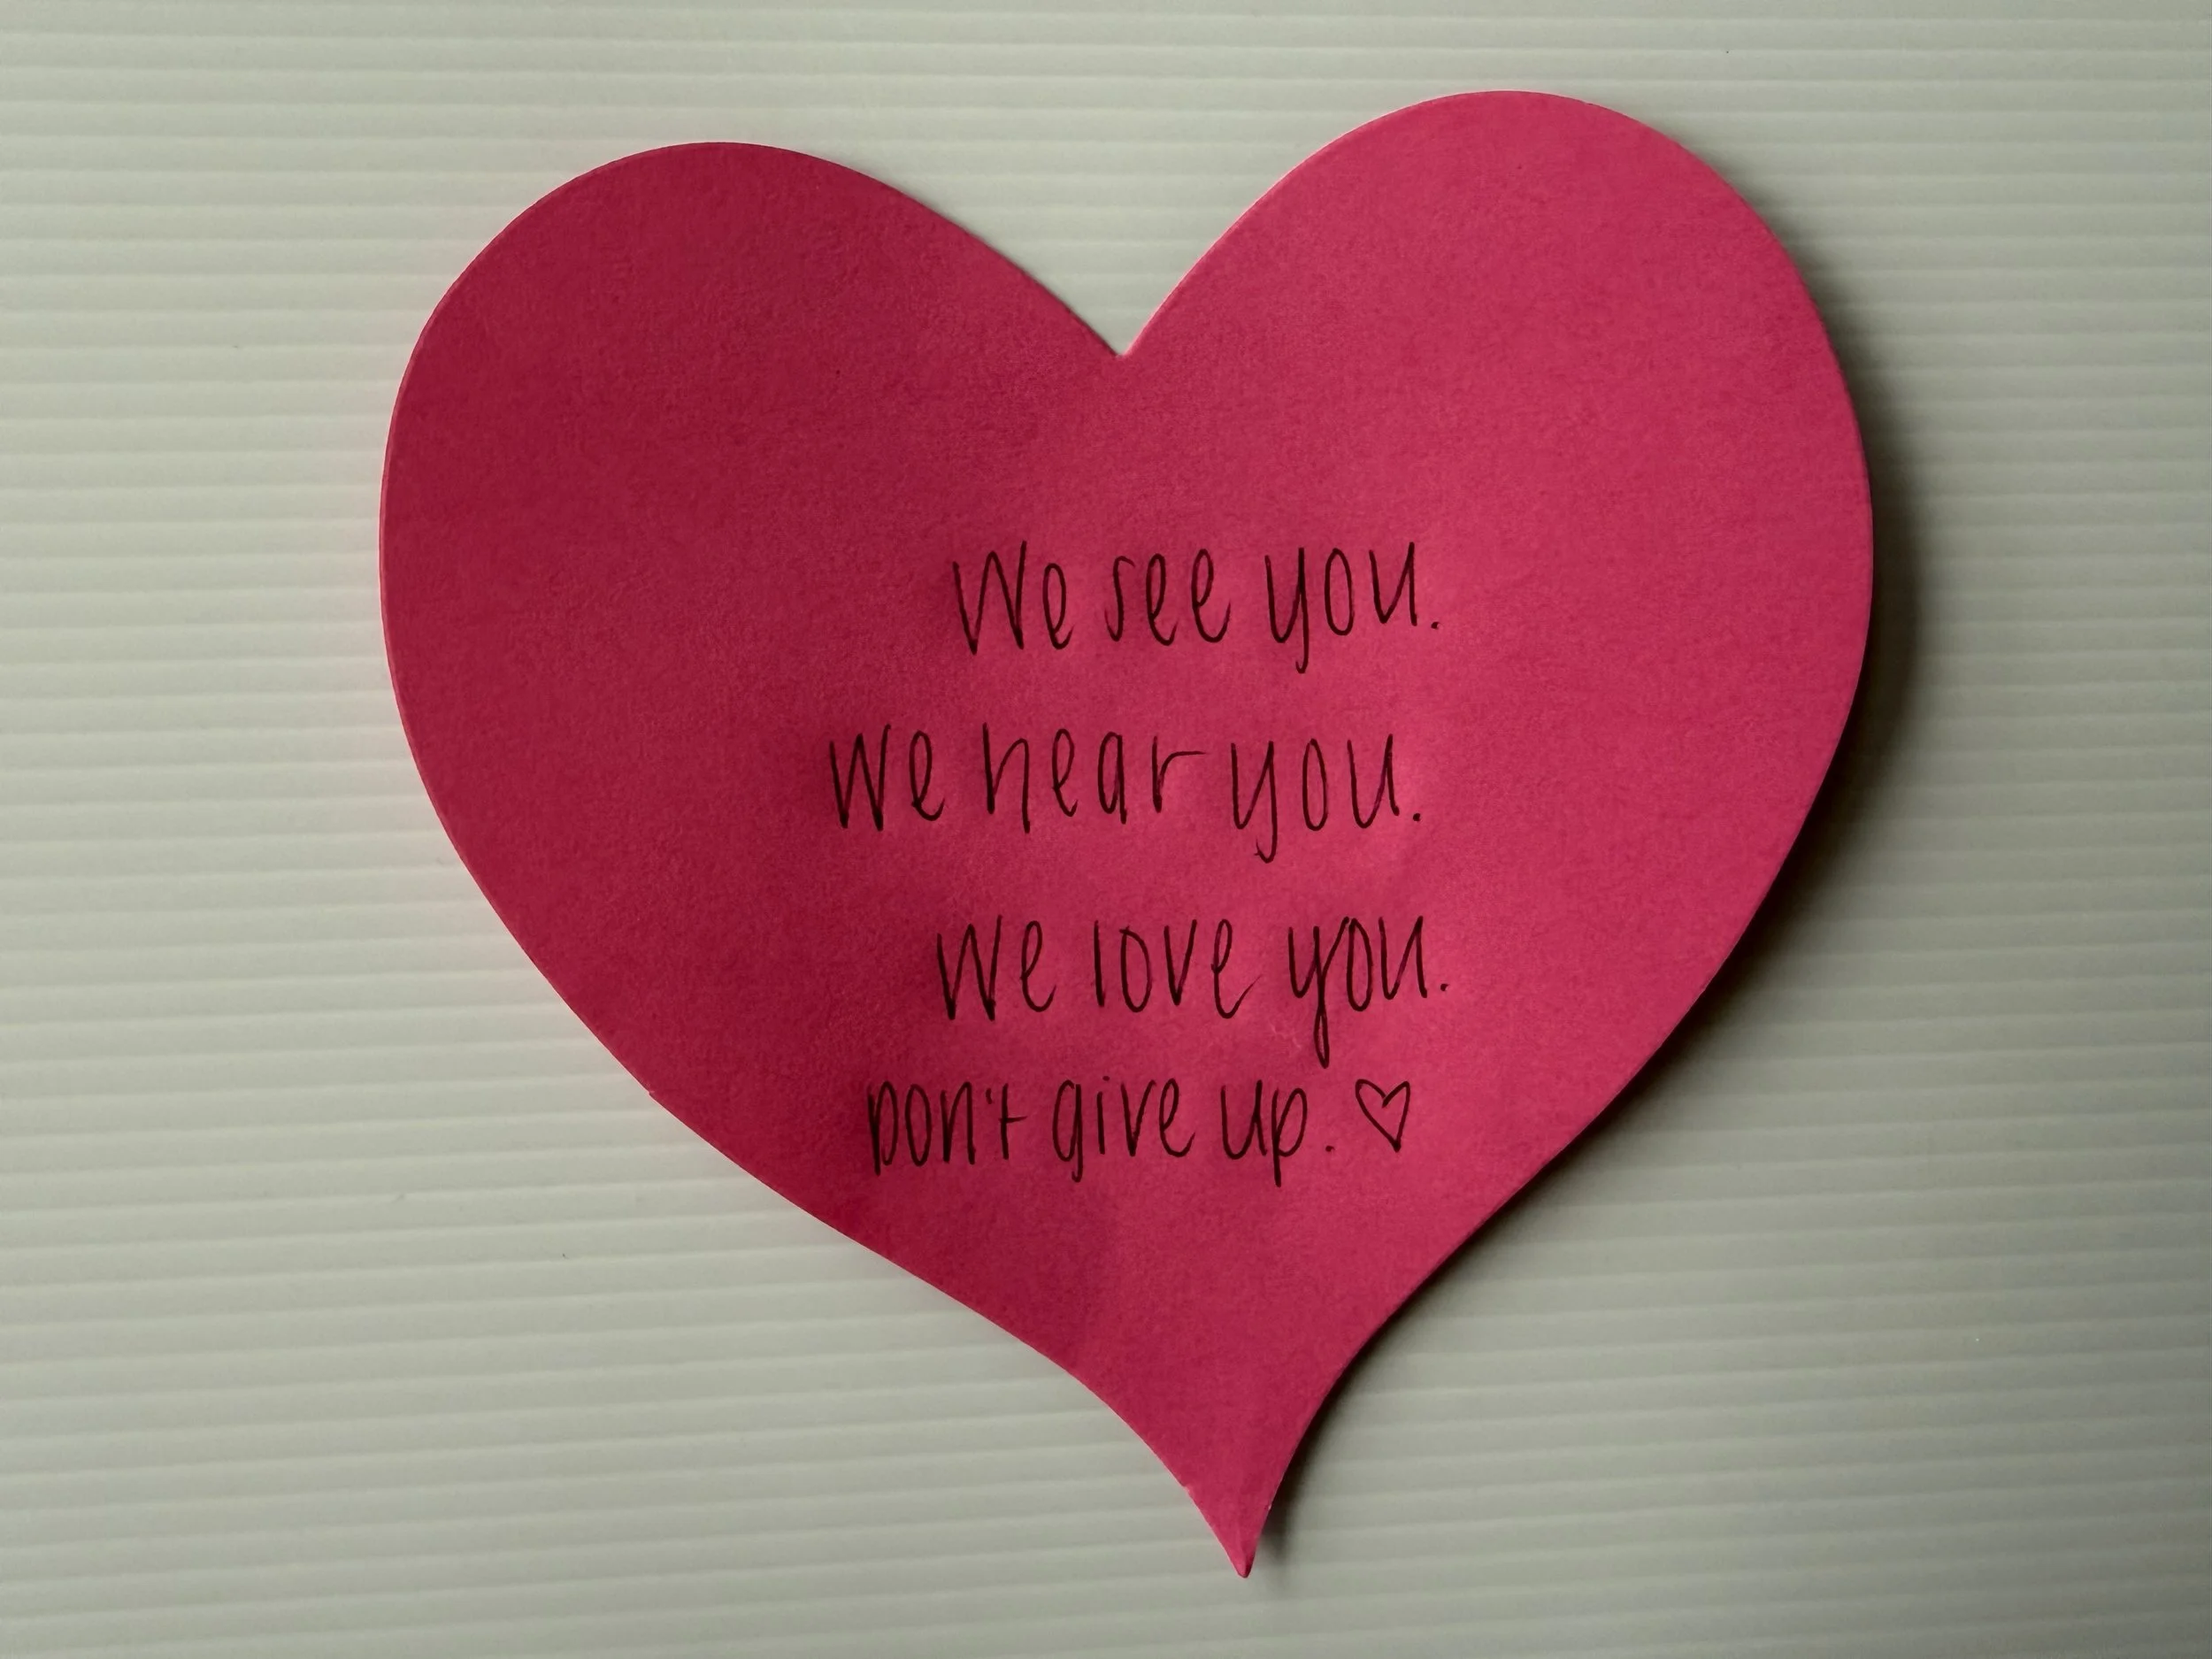 We see you.
We hear you.
We love you.
Don't give up. ♡